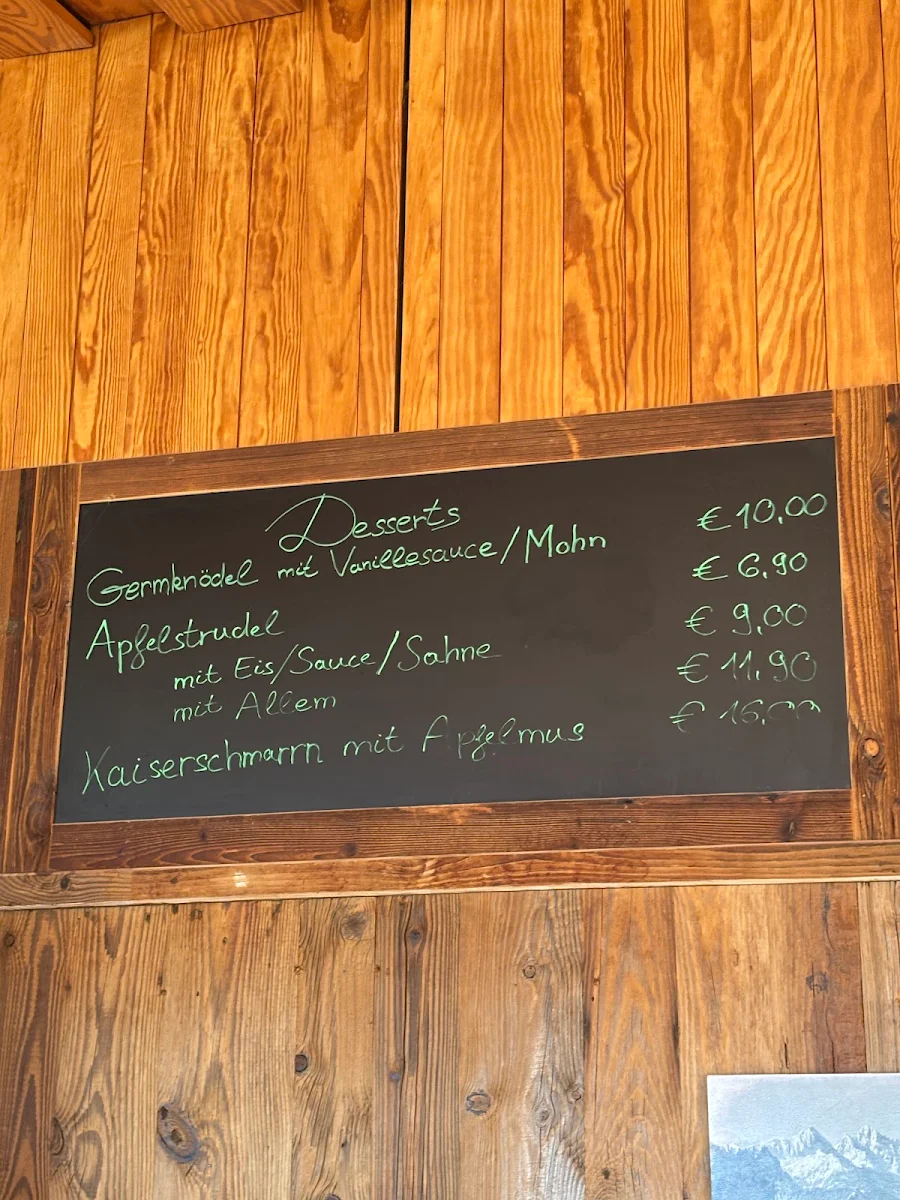 Desserts
Germknödel mit Vanillesauce/Mohn € 10,00
Apfelstrudel € 6,90
mit Eis/Sauce/Sahne € 9,00
mit Allem € 11,90
Kaiserschmarrn mit Apfelmus € 16,00